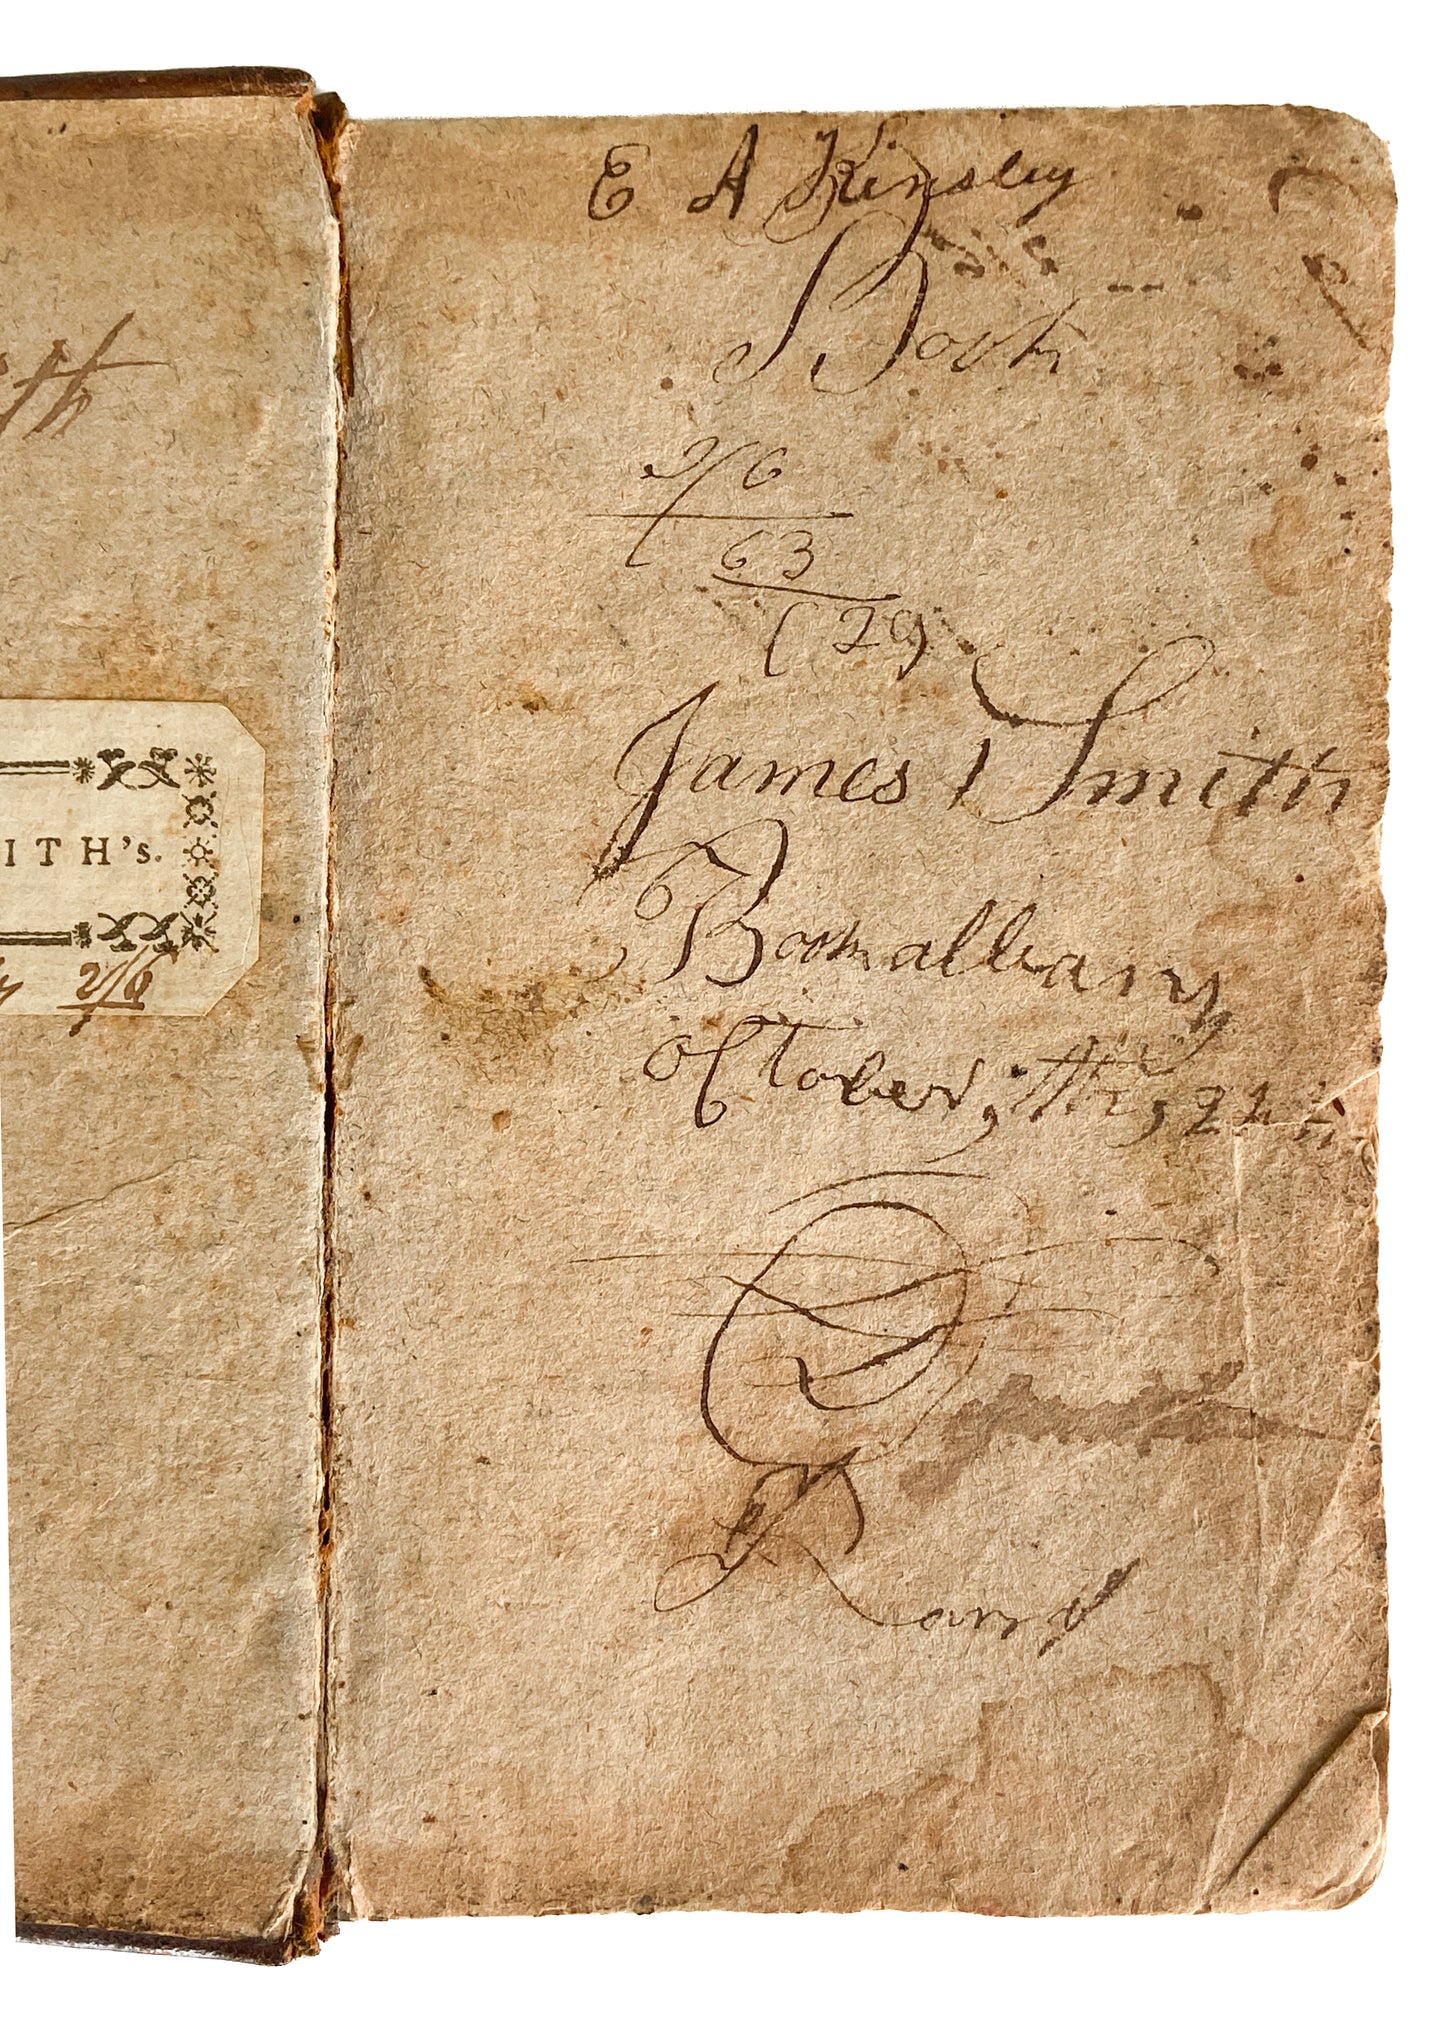 ITH's.
2/6
E A Kinsley
Book
2/6
63
(29)
James Smith
Book albany
october, the, 22